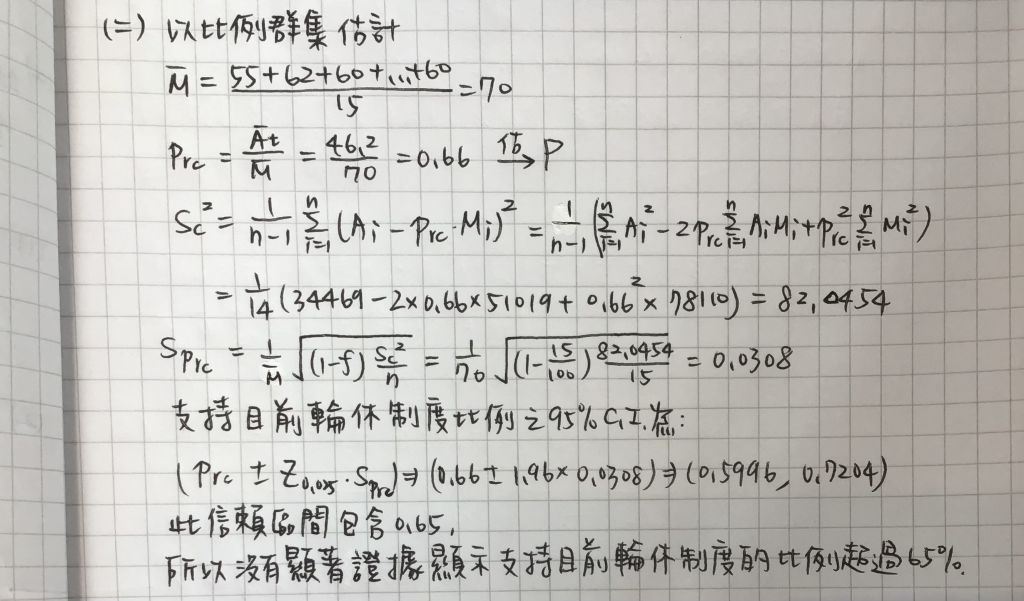 (二) 以比例群集估計
M̄ = (55+62+60+...+60)/15 = 70
Prc = Āt/M̄ = 46.2/70 = 0.66 估→ P
Sc² = 1/(n-1) Σ_{i=1}^{n} (Ai - Prc·Mi)² = 1/(n-1) (Σ_{i=1}^{n} Ai² - 2Prc Σ_{i=1}^{n} AiMi + Prc² Σ_{i=1}^{n} Mi²)
= 1/14 (34469 - 2×0.66×51019 + 0.66² × 78110) = 82.0454
SPrc = 1/M̄ √((1-f) Sc²/n) = 1/70 √((1-15/100) 82.0454/15) = 0.0308
支持目前輪休制度比例之95% C.I.為:
(Prc ± Z0.025·SPrc) ⇒ (0.66 ± 1.96×0.0308) ⇒ (0.5996, 0.7204)
此信賴區間包含0.65,
所以沒有顯著證據顯示支持目前輪休制度的比例超過65%.